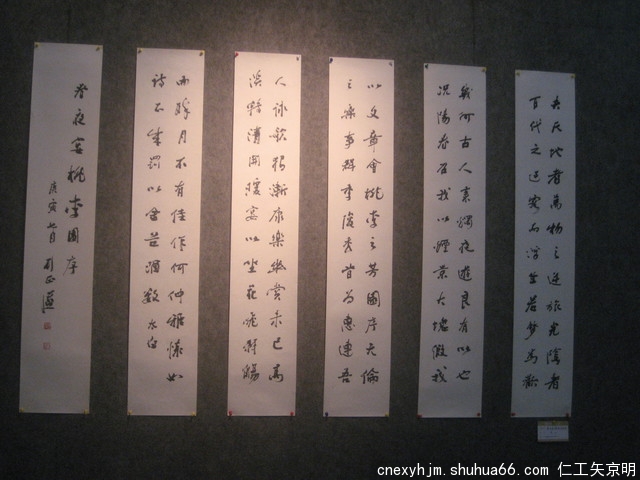 夫天地者萬物之逆旅光陰者
百代之過客而浮生若夢為歡
幾何古人秉燭夜遊良有以也
況陽春召我以煙景大塊假我
以文章會桃李之芳園序天倫
之樂事群季俊秀皆為惠連吾
人詠歌獨慚康樂幽賞未已高
談轉清開瓊宴以坐花飛羽觴
而醉月不有佳作何伸雅懷如
詩不成罰以金谷酒數
春夜宴桃李園序
庚寅
cnexyhjm.shuhua66.com 仁工矢京明